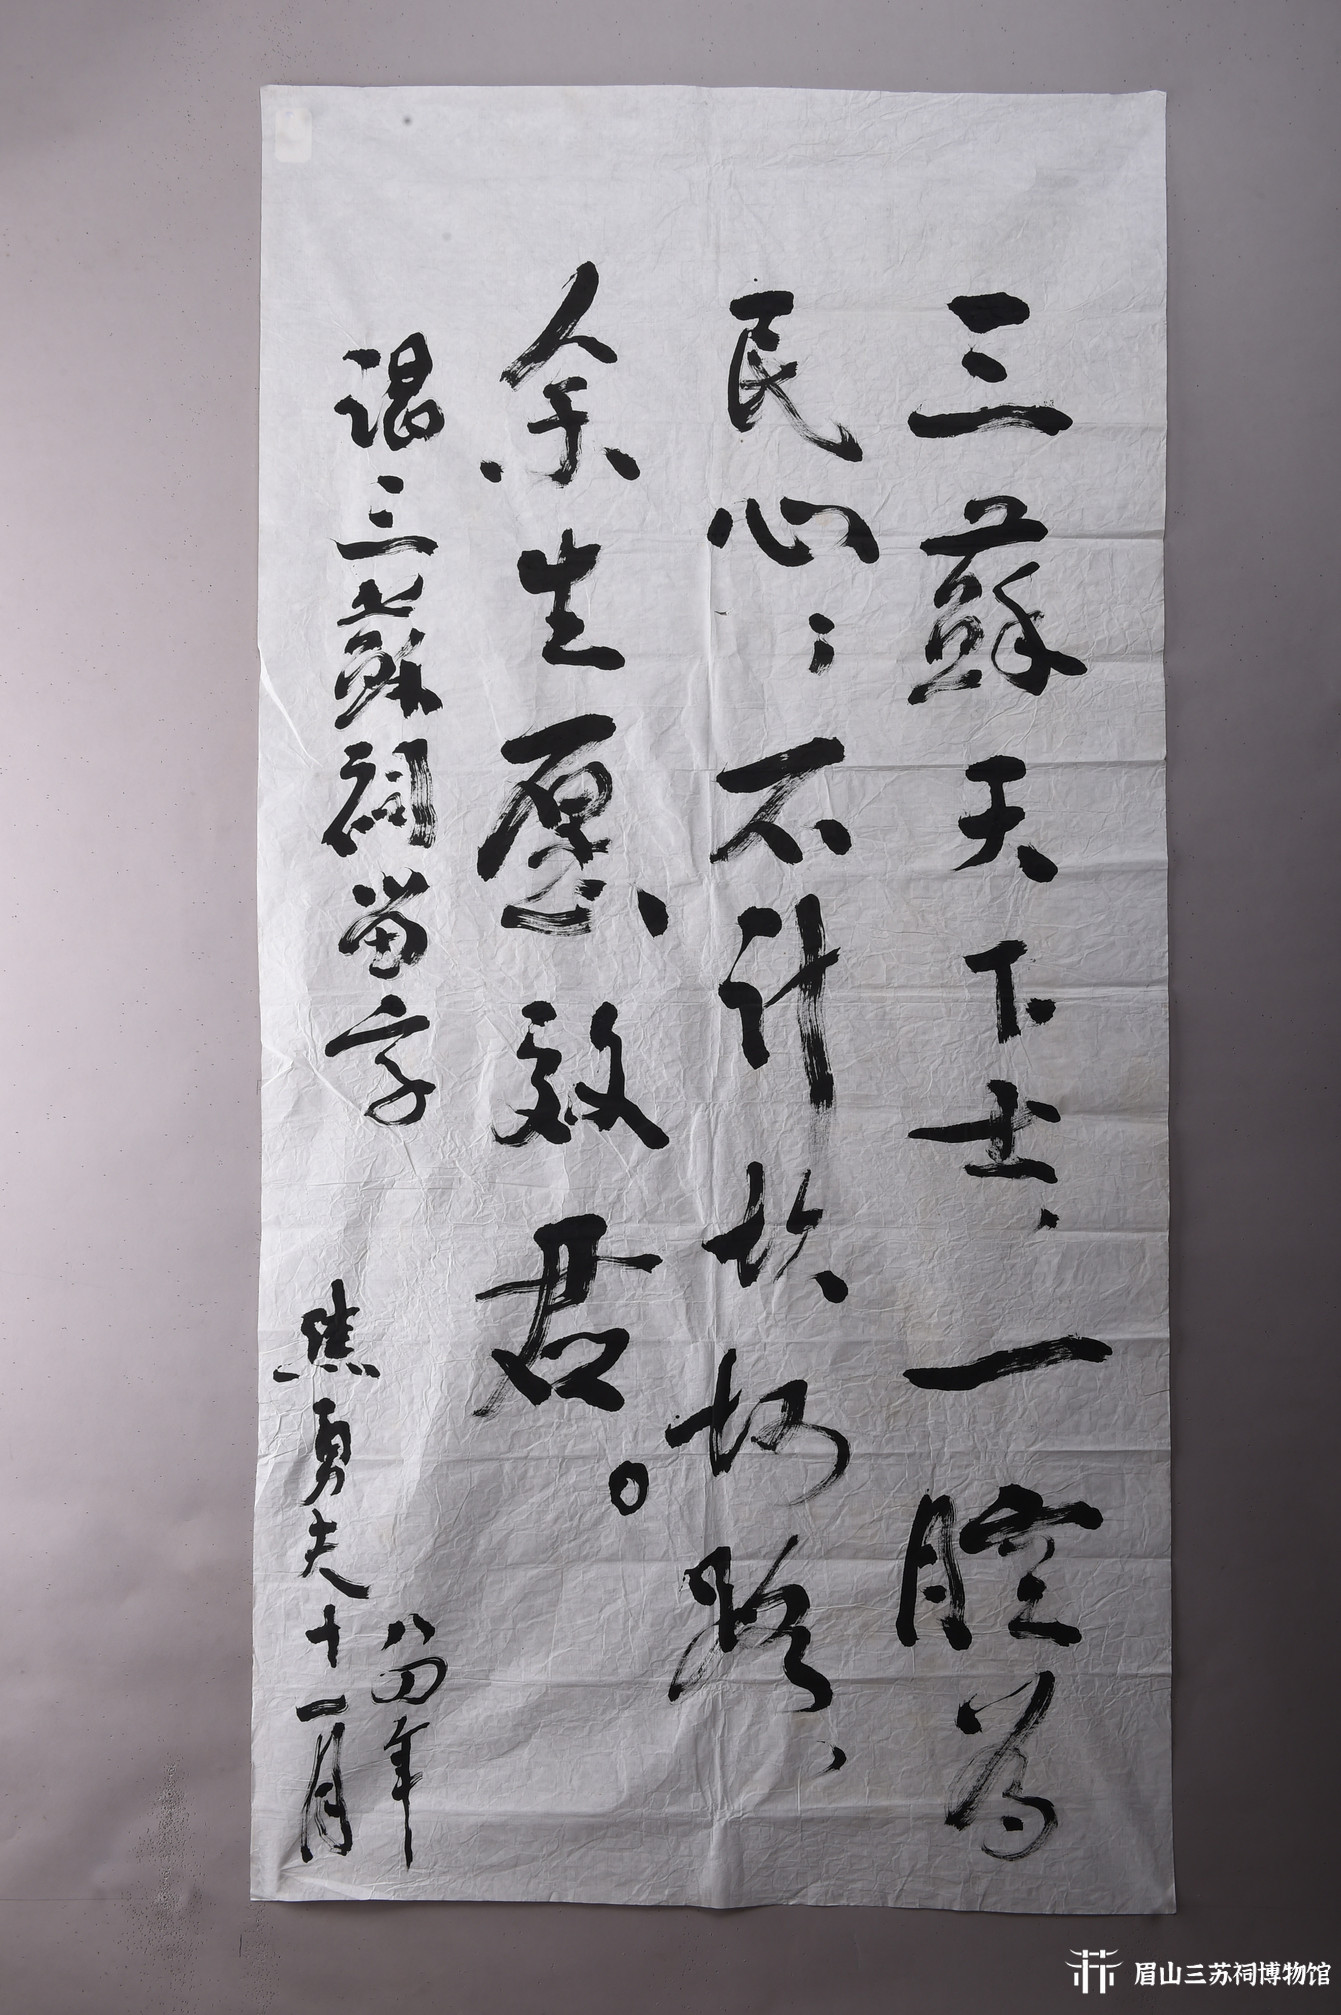 三蘇天下士，一腔为
民心；不计坎坷路，
余生愿效君。
谒三蘇祠留字
八四年
焦勇夫十一月
眉山三苏祠博物馆